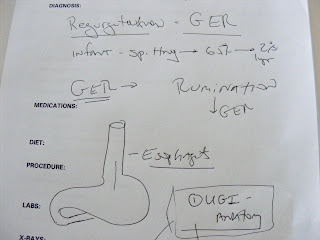 DIAGNOSIS:
Regurgitation - GER
infant - spitting → 65% → 2%
1yr
GER → RUMINATION
↓ GER
MEDICATIONS:
DIET:
Esophagus
PROCEDURE:
LABS:
① UGI -
Anatomy
X-RAYS: